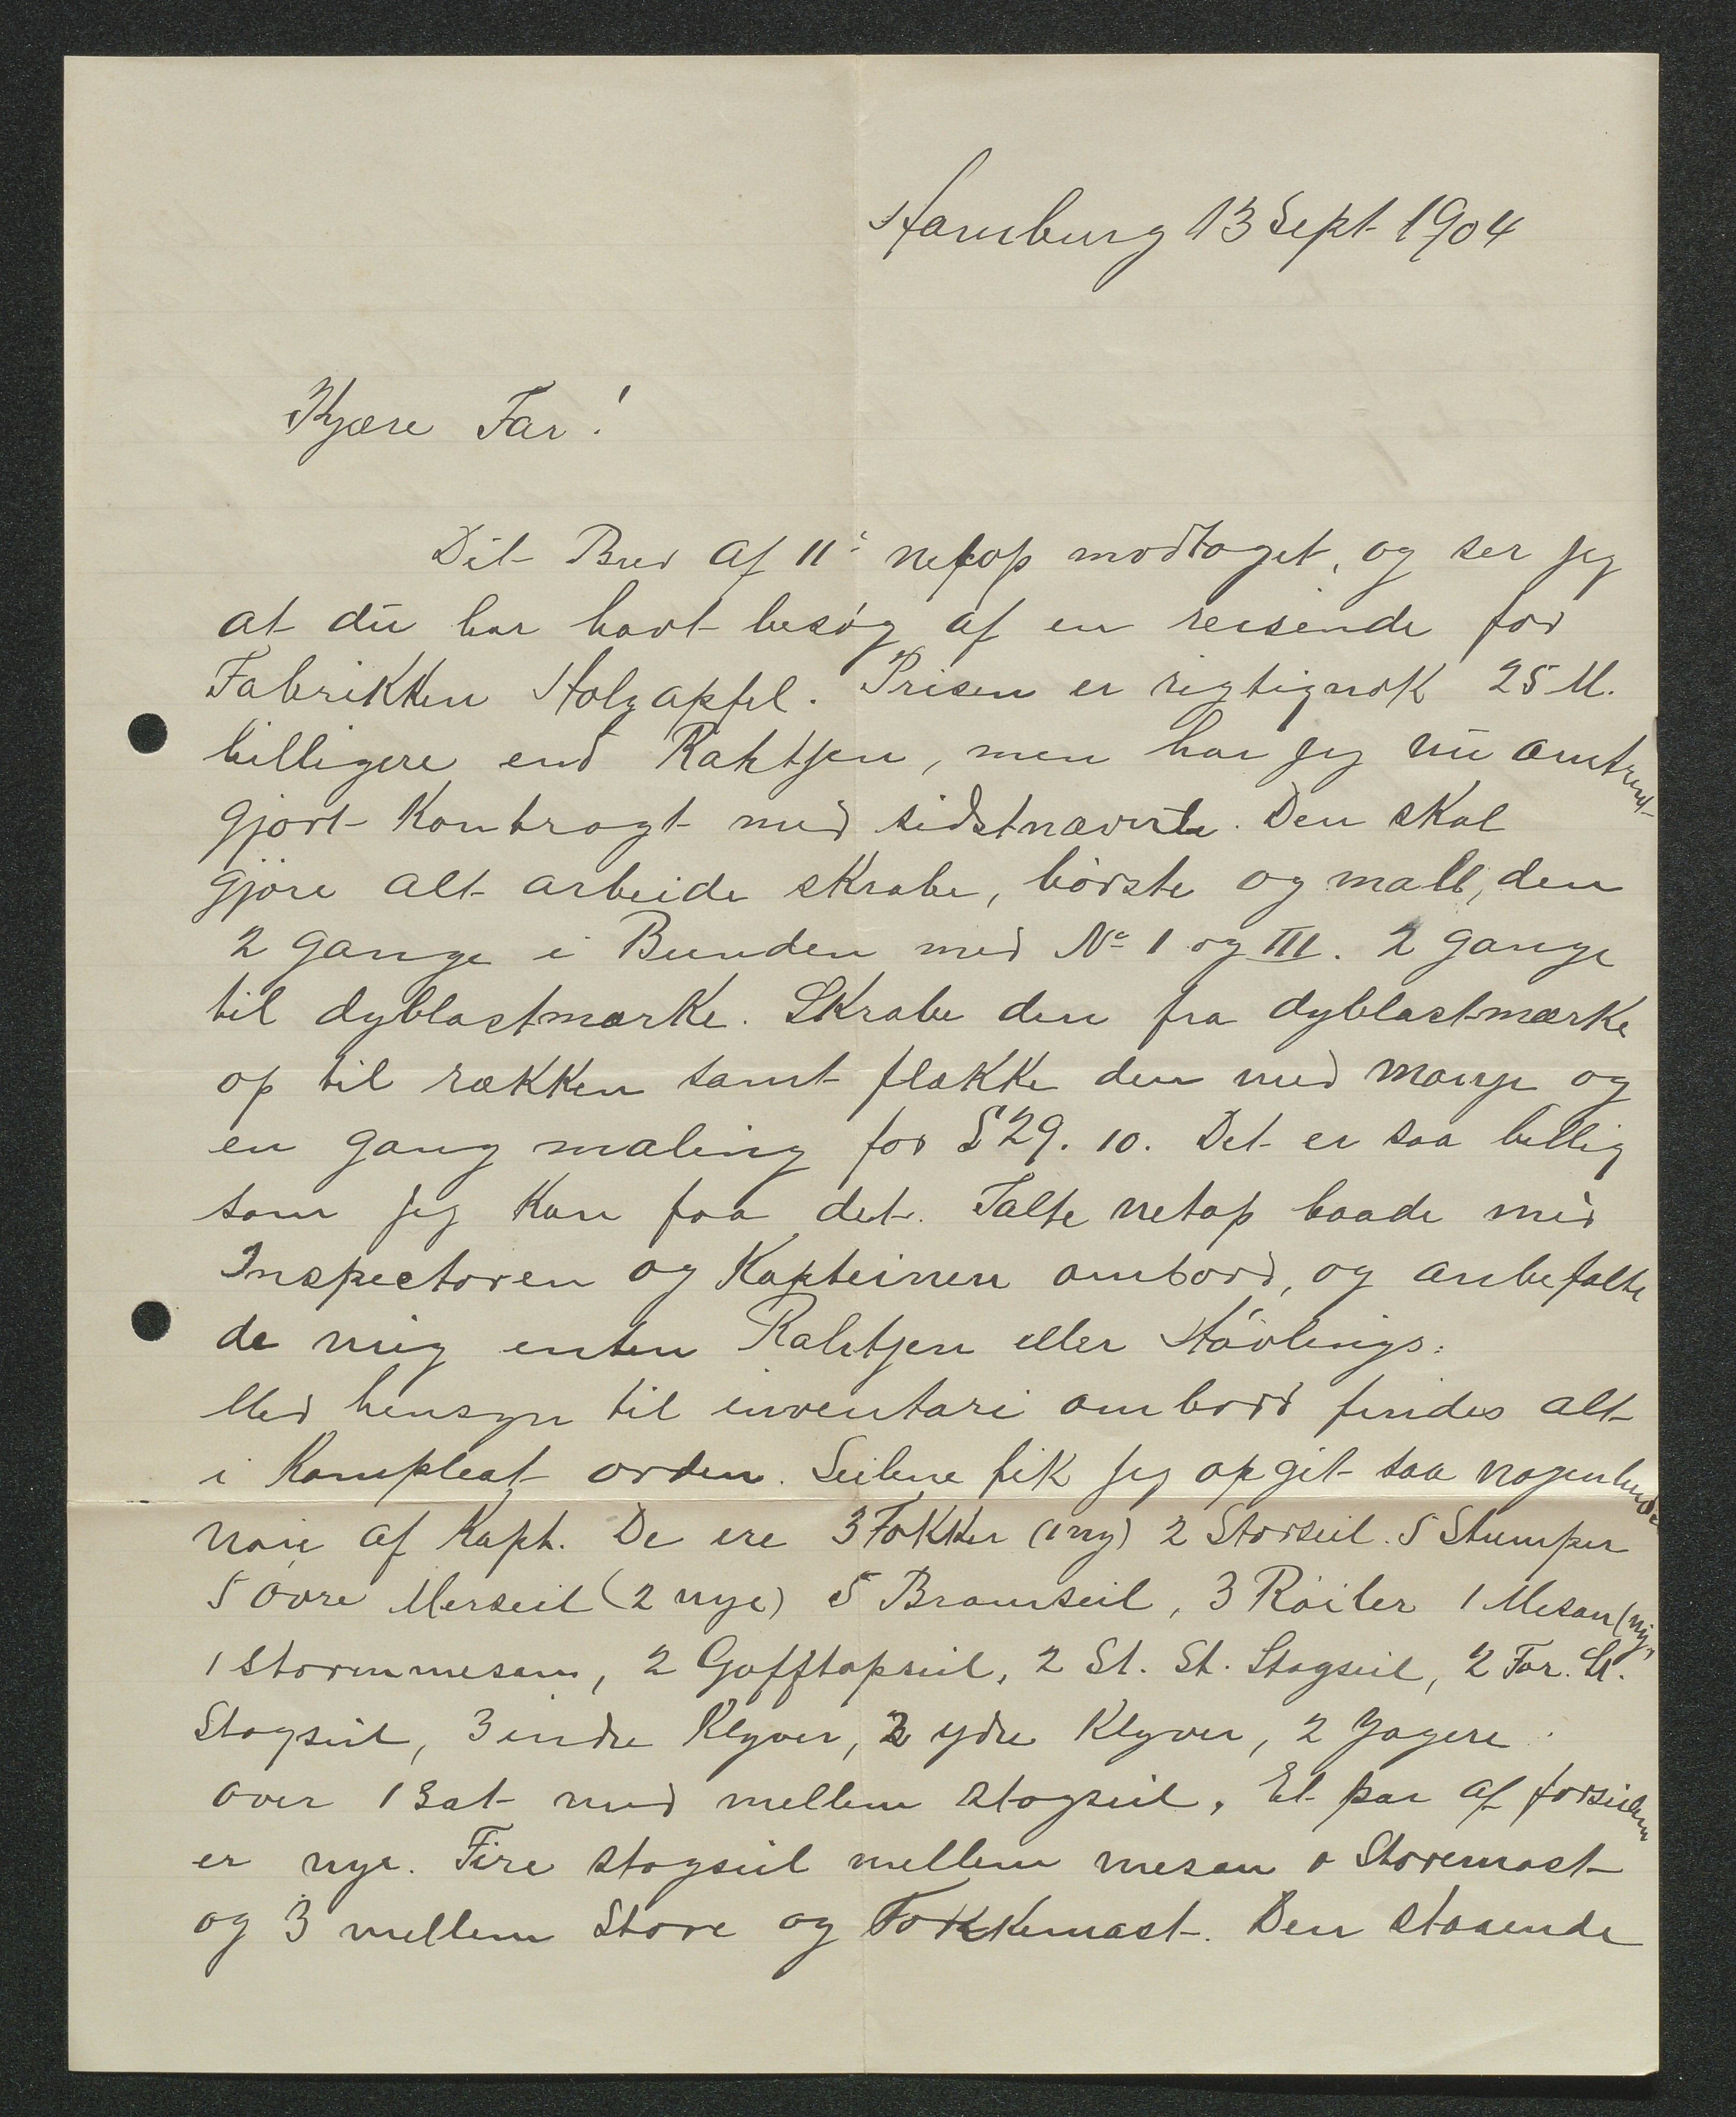 Hamburg 13 Sept 1904
Kjære Far!
Dit Brev af 11' netop modtaget, og ser jeg
at du har havt besøg af en reisende for
Fabrikken Holzapfel. Prisen er rigtignok 25 M.
billigere end Rahtjen, men har jeg nu omtrent
gjort Kontragt med sidstnævnte. Den skal
gjøre alt arbeide skrabe, børste og malt, den
2 gange i Bunden med No 1 og III. 2 gange
til dyblastmærke. Skrabe den fra dyblastmærke
op til rækken samt flække den med mønje og
en gang maling for £29. 10. Det er saa billig
som jeg kan faa det. Talte netop baade med
Inspectoren og Kapteinen ombord, og anbefalte
de mig enten Rahtjen eller Hövlings.
Med hensyn til inventari ombord findes alt
i Kompleat orden. Seilene fik jeg opgit saa nogenlunde
nøie af Kapt. De ere 3 Fokker (1 ny) 2 Storseil. 5 Stumper
5 Øvre Merseil (2 nye) 5 Bramseil, 3 Röiler 1 Mesan (ny)
1 stormmesan, 2 Gafftopseil, 2 St. St. Stagseil, 2 For. St.
Stagseil, 3 indre Klyver, 2 ydre Klyver, 2 Jagere
over 1 sat med mellem stagseil. Et par af forseilene
er nye. Fire stagseil mellem mesan o Stormast
og 3 mellem Store og Fokkemast. Den staaende